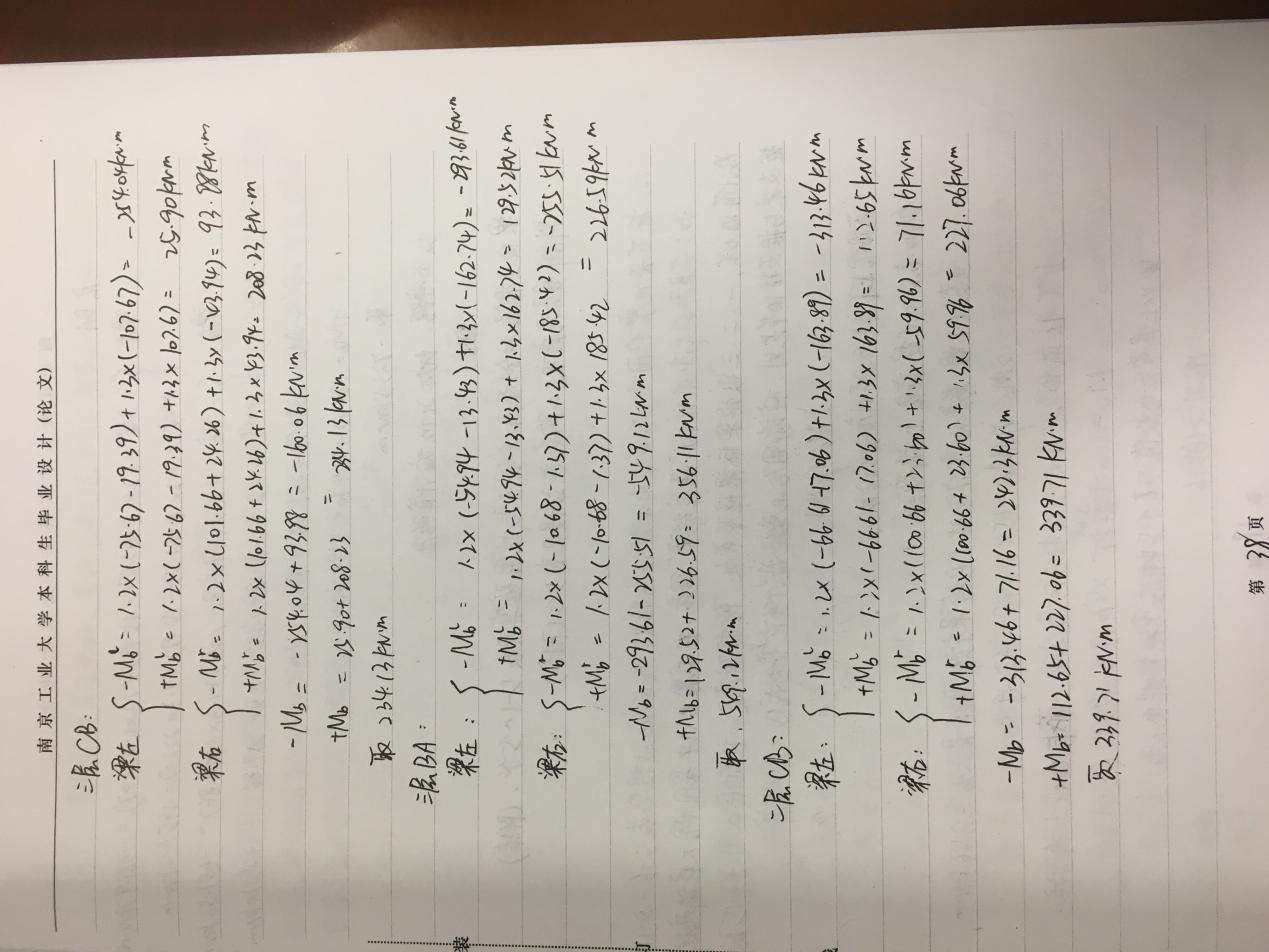 南京工业大学本科生毕业设计(论文)
三层CB:
梁左 -M_b^l = 1.2×(-75.67-19.39)+1.3×(-107.67) = -254.04kN·m
+M_b^l = 1.2×(-75.67-19.39)+1.3×107.67) = 25.90kN·m
梁右 -M_b^r = 1.2×(101.66+24.26)+1.3×(-43.94) = 93.98kN·m
+M_b^r = 1.2×(101.66+24.26)+1.3×43.94 = 208.23kN·m
-M_b = -254.04+93.98 = -160.06kN·m
+M_b = 25.90+208.23 = 234.13kN·m
取 234.13kN·m
二层BA:
梁左: -M_b^l = 1.2×(-54.94-13.43)+1.3×(-162.74) = -293.61kN·m
+M_b^l = 1.2×(-54.94-13.43)+1.3×162.74 = 129.52kN·m
梁右: -M_b^r = 1.2×(-10.68-1.37)+1.3×(-185.42) = -255.51kN·m
+M_b^r = 1.2×(-10.68-1.37)+1.3×185.42 = 226.59kN·m
-M_b = -293.61-255.51 = -549.12kN·m
+M_b = 129.52+226.59 = 356.11kN·m
取 549.12kN·m
二层CB:
梁左: -M_b^l = 1.2×(-66.61+17.06)+1.3×(-163.89) = -313.46kN·m
+M_b^l = 1.2×(-66.61-17.06)+1.3×163.89 = 112.65kN·m
梁右: -M_b^r = 1.2×(100.66+23.60)+1.3×(-59.96) = 71.16kN·m
+M_b^r = 1.2×(100.66+23.60)+1.3×59.96 = 227.06kN·m
-M_b = -313.46+71.16 = 242.3kN·m
+M_b = 112.65+227.06 = 339.71kN·m
取 339.71kN·m
第 38 页
装
订